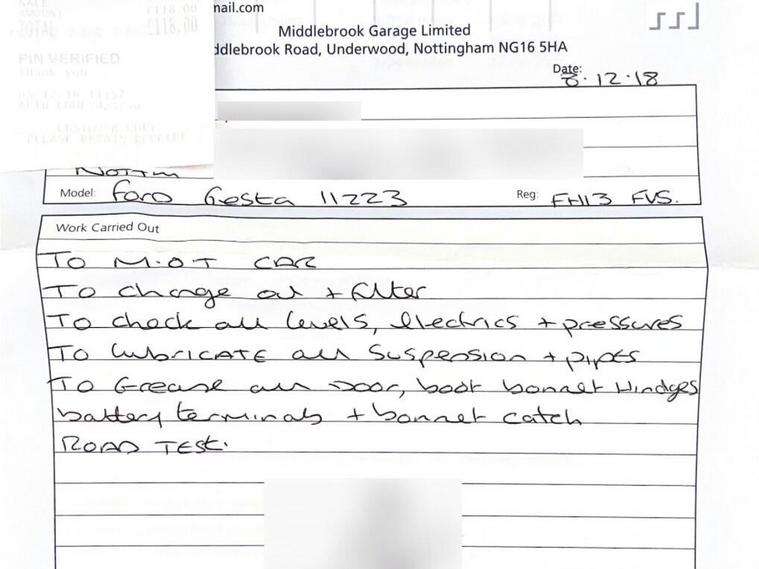 SALE
AMOUNT £118.00
TOTAL £118.00
PIN VERIFIED
Thank you
CUSTOMER COPY
PLEASE RETAIN RECEIPT
mail.com
Middlebrook Garage Limited
ddlebrook Road, Underwood, Nottingham NG16 5HA
Date: 8.12.18
Nottm
Model: Ford Fiesta 11223 Reg: FH13 FVS.
Work Carried Out
To M.O.T CAR
To change oil + filter
To check all levels, electrics + pressures
To lubricate all suspension + pipes
To Grease all Door, boot bonnet Hindges
battery terminals + bonnet catch
ROAD TEST.